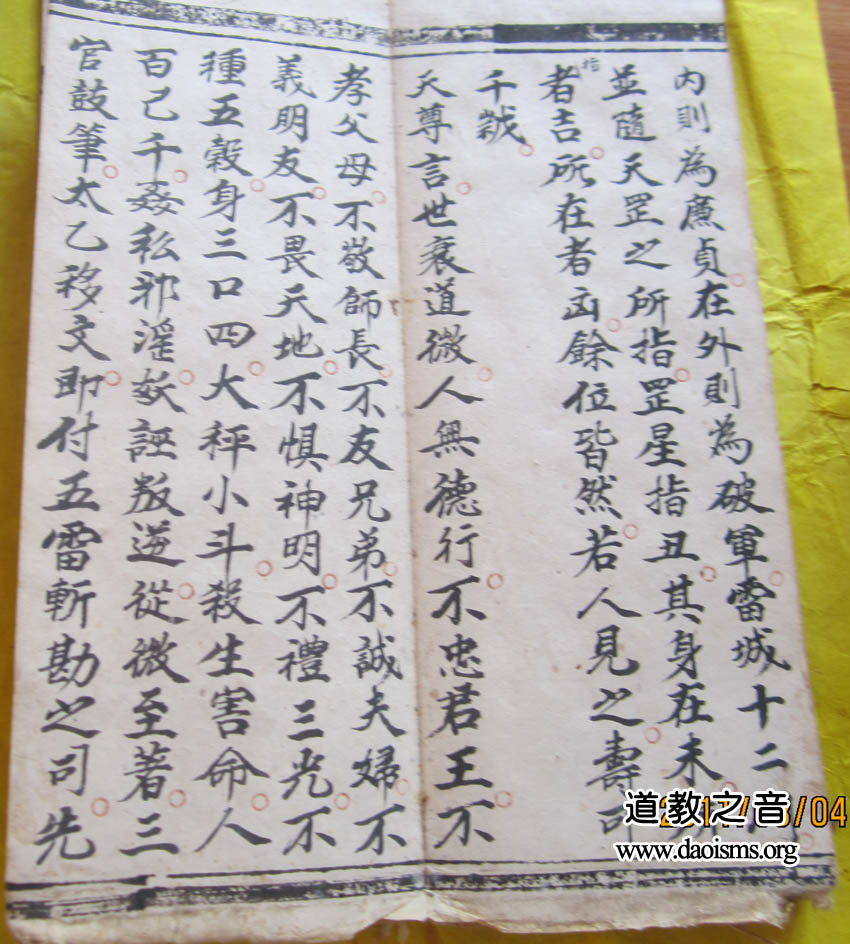 內則為廉貞在外則為破軍雷城十二門
並隨天罡之所指罡星指丑其身在未所
指
者吉所在者凶餘位皆然若人見之壽可
千歲
天尊言世衰道微人無德行不忠君王不
孝父母不敬師長不友兄弟不誠夫婦不
義明友不畏天地不惧神明不禮三光不
種五穀身三口四大秤小斗殺生害命人
百己千姦私邪淫妖誣叛逆從微至著三
官鼓筆太乙移文即付五雷斬勘之司先
道教之音
www.daoisms.org